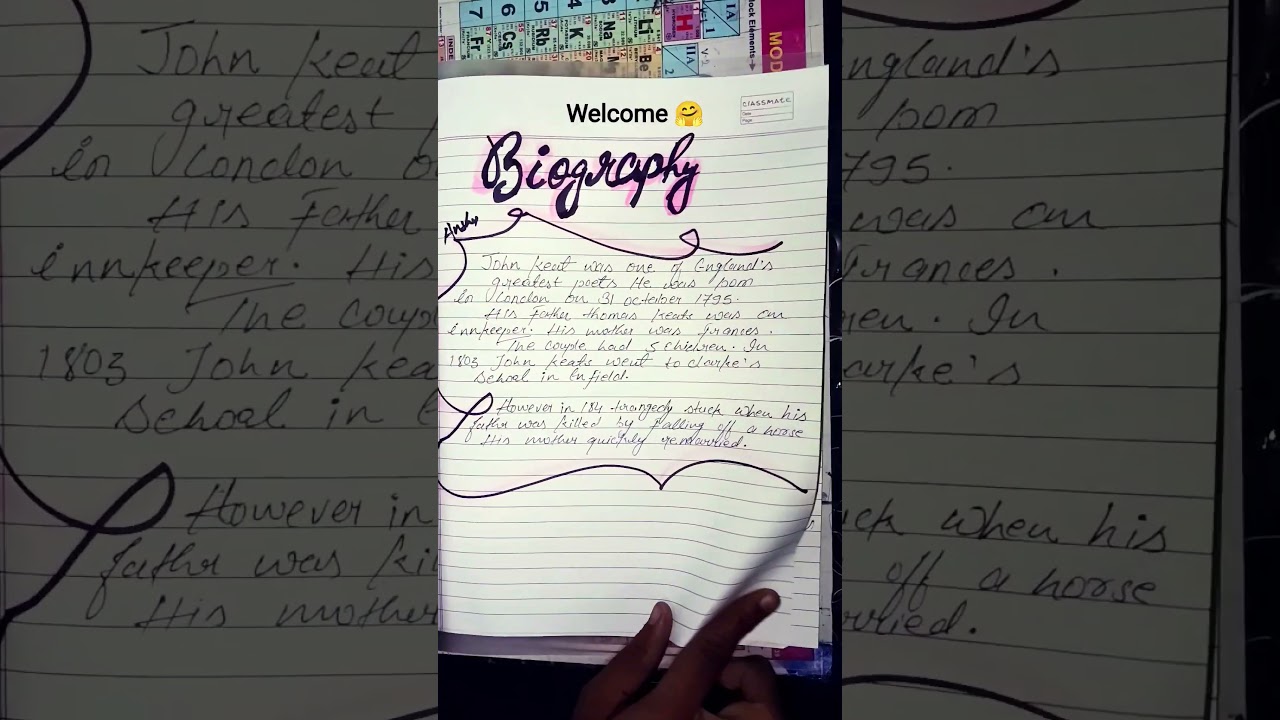 IA
1
H
IIA
2
Li
Be
Na
K
Rb
Cs
Fr
4
5
6
7
MOD
lock Elements
INDE
CLASSMATE
Date
Page
Welcome 🤗
Biography
John Keat was one of England's
greatest poets He was born
in London on 31 october 1795.
His Father thomas keats was an
innkeeper. His mother was frances.
The couple had 5 children. In
1803 John keats went to clarke's
School in Enfield.
However in 184 trangedy stuck when his
fathr was killed by falling off a horse
His mother quickly remarried.